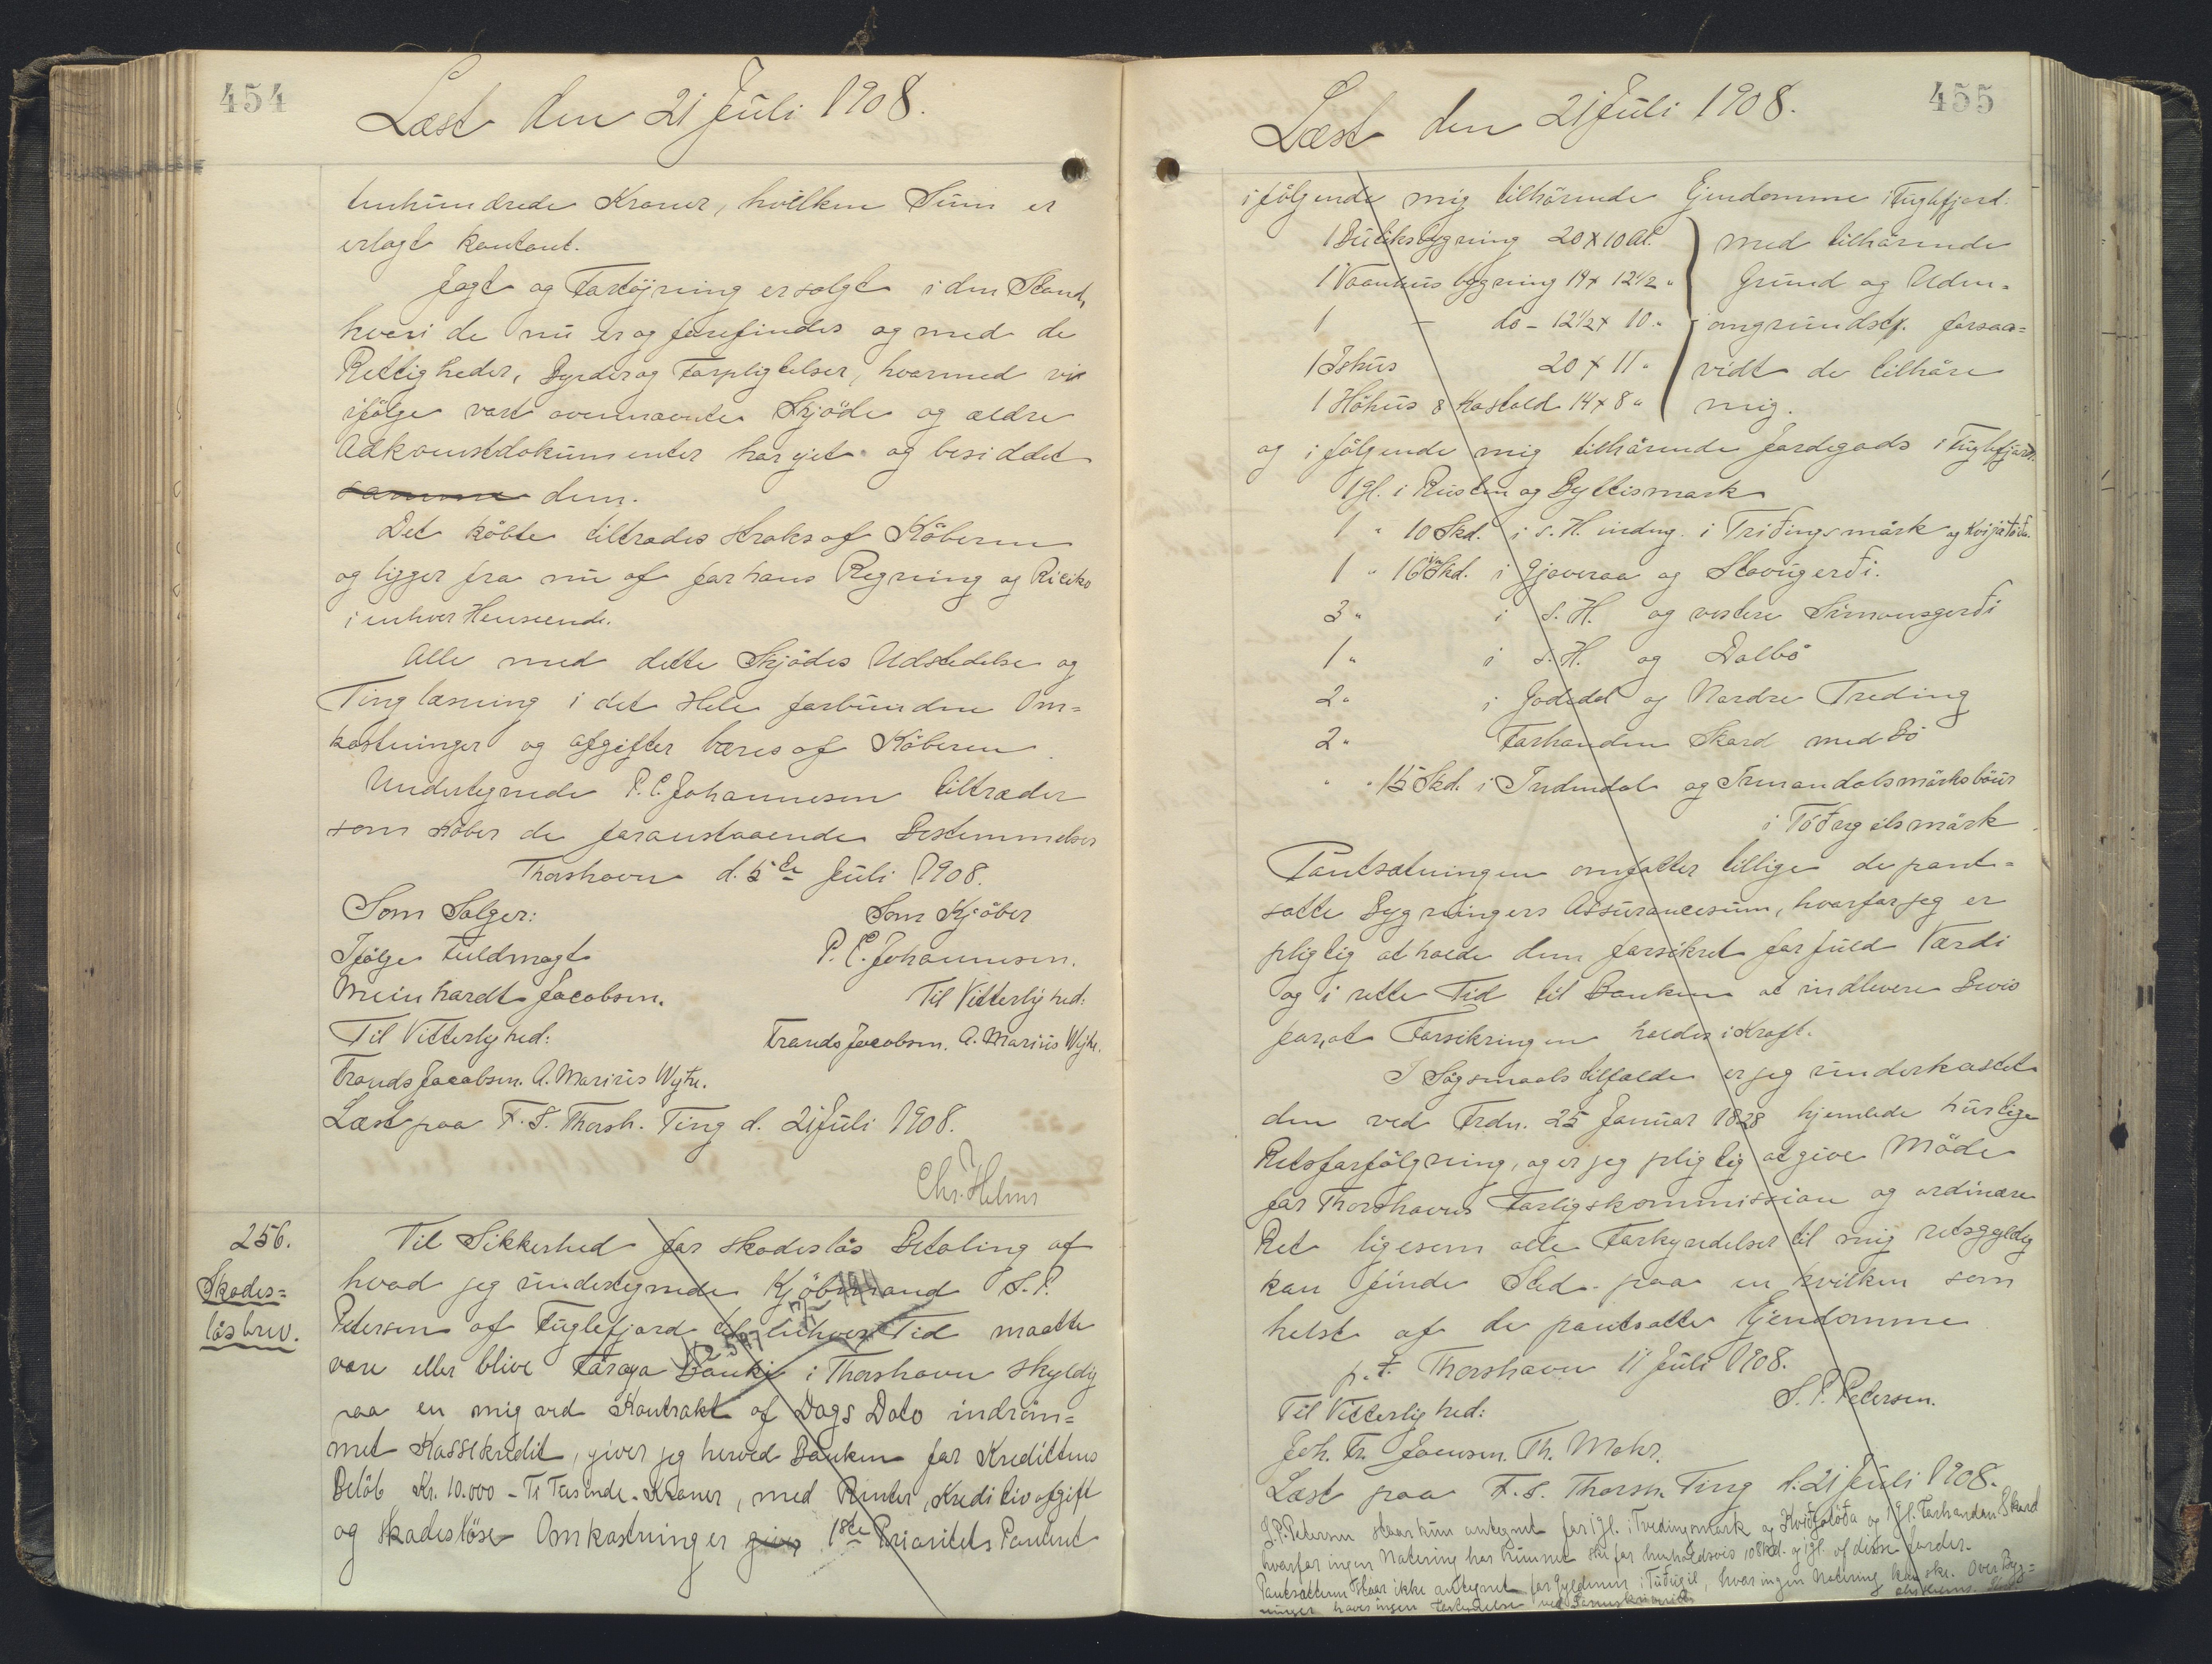 454
Læst den 21 Juli 1908.
tenhundrede Kroner, hvilken Sum er
erlagt kontant.
Jagt og Fartöjning er solgt i den Stand,
hvori de nu er og forefindes og med de
Rettigheder, Byrder og Forpligtelser, hvormed vi
ifölge vort ovennævnte Skjöde og ældre
Adkomstdokumenter har ejet og besiddet
samme dem.
Det köbte tiltrædes straks af Köberen
og ligger fra nu af for hans Regning og Risiko
i enhver Henseende.
Alle med dette Skjödes Udstedelse og
Tinglæsning i det Hele forbundne Om=
kostninger og Afgifter bæres af Köberen.
Undertegnede P. C. Johannesen tiltræder
som Köber de foranstaaende Bestemmelser
Thorshavn d. 5te Juli 1908.
Som Sælger:
Ifölge Fuldmagt
Meinhardt Jacobsen.
Til Vitterlighed:
Trands Jacobsen. A. Marius Wejhe.
Som Kjöber
P. C. Johannesen.
Til Vitterlighed:
Trands Jacobsen. A. Marius Wejhe.
Læst paa F. S. Thorsh. Ting d. 21 Juli 1908.
Chr. Helms
256.
Skades=
lösbrev.
Til Sikkerhed for skadeslös Betaling af
hvad jeg undertegnede Kjöbmand S. P.
Petersen af Fuglefjord til enhver Tid maatte
være eller blive Föroya Banki i Thorshavn skyldig
paa en mig ved Kontrakt af Dags Dato indröm=
met Kassekredit, giver jeg herved Banken for Kredittens
Belöb Kr. 10.000 - Ti Tusende - Kroner, med Renter, Kreditivafgift
og skadeslöse Omkostninger giver 1ste Prioritets Panteret
455
Læst den 21 Juli 1908.
i fölgende mig tilhörende Ejendomme i Fuglefjord:
1 Butiksbygning 20 x 10 Al.
1 Vaanhusbygning 19 x 12 1/2 "
1 - do - 12 1/2 x 10 "
1 Ishus 20 x 11 "
1 Höhus & Kostald 14 x 8 "
med tilhörende
Grund og Uden=
omgrundstk. forsaa=
vidt de tilhöre
mig.
og i fölgende mig tilhörende Jordegods i Fuglefjord:
1 gl. i Rusten og Byltismark
1 " 10 Skd. i s. H. indmg. i Triðingsmark og Kvijatöða
1 " 16 Skd. i Gjoveraa og Stovugerði.
3 " i s. H. og vestere Simonsgerði
1 " i s. H. og Dalbö
2 " i Jodedel og Nordre Treding
2 " Forhanden Skard med Bö
" " 15 Skd. i Indendal og Trenandalsmarksböur
i Töðugilsmark.
Pantsætningen omfatter tillige de pant=
satte Bygningers Assurancesum, hvorfor jeg er
pligtig at holde dem forsikret for fuld Værdi
og i rette Tid til Banken at indlevere Bevis
for, at Forsikringen holdes i Kraft.
I Sögsmaalstilfælde er jeg underkastet
den ved Frdn. 25 Januar 1828 hjemlede hurtige
Retsforfölgning, og er jeg pligtig at give Möde
for Thorshavns Forligskommission og ordinære
Ret ligesom alle Forkyndelser til mig retsgyldig
kan finde Sted paa en hvilken som
helst af de pantsatte Ejendomme
p. t. Thorshavn 11 Juli 1908.
S. P. Petersen.
Til Vitterlighed:
Joh. Fr. Joensen. Th. Mohr.
Læst paa F. S. Thorsh. Ting d. 21 Juli 1908.
S. P. Petersen staar kun antegnet for 1 gl. i Tredingsmark og Kviðjatöða og 1 gl. Forhanden Skard
hvorfor ingen Notering har kunnet ske for henholdsvis 10 Skd. og 1 gl. af disse Jorder.
Pantsætteren staar ikke antegnet for Gyldenen i Tuðugil, hvor ingen Notering kan ske. Over Byg=
ninger haves ingen